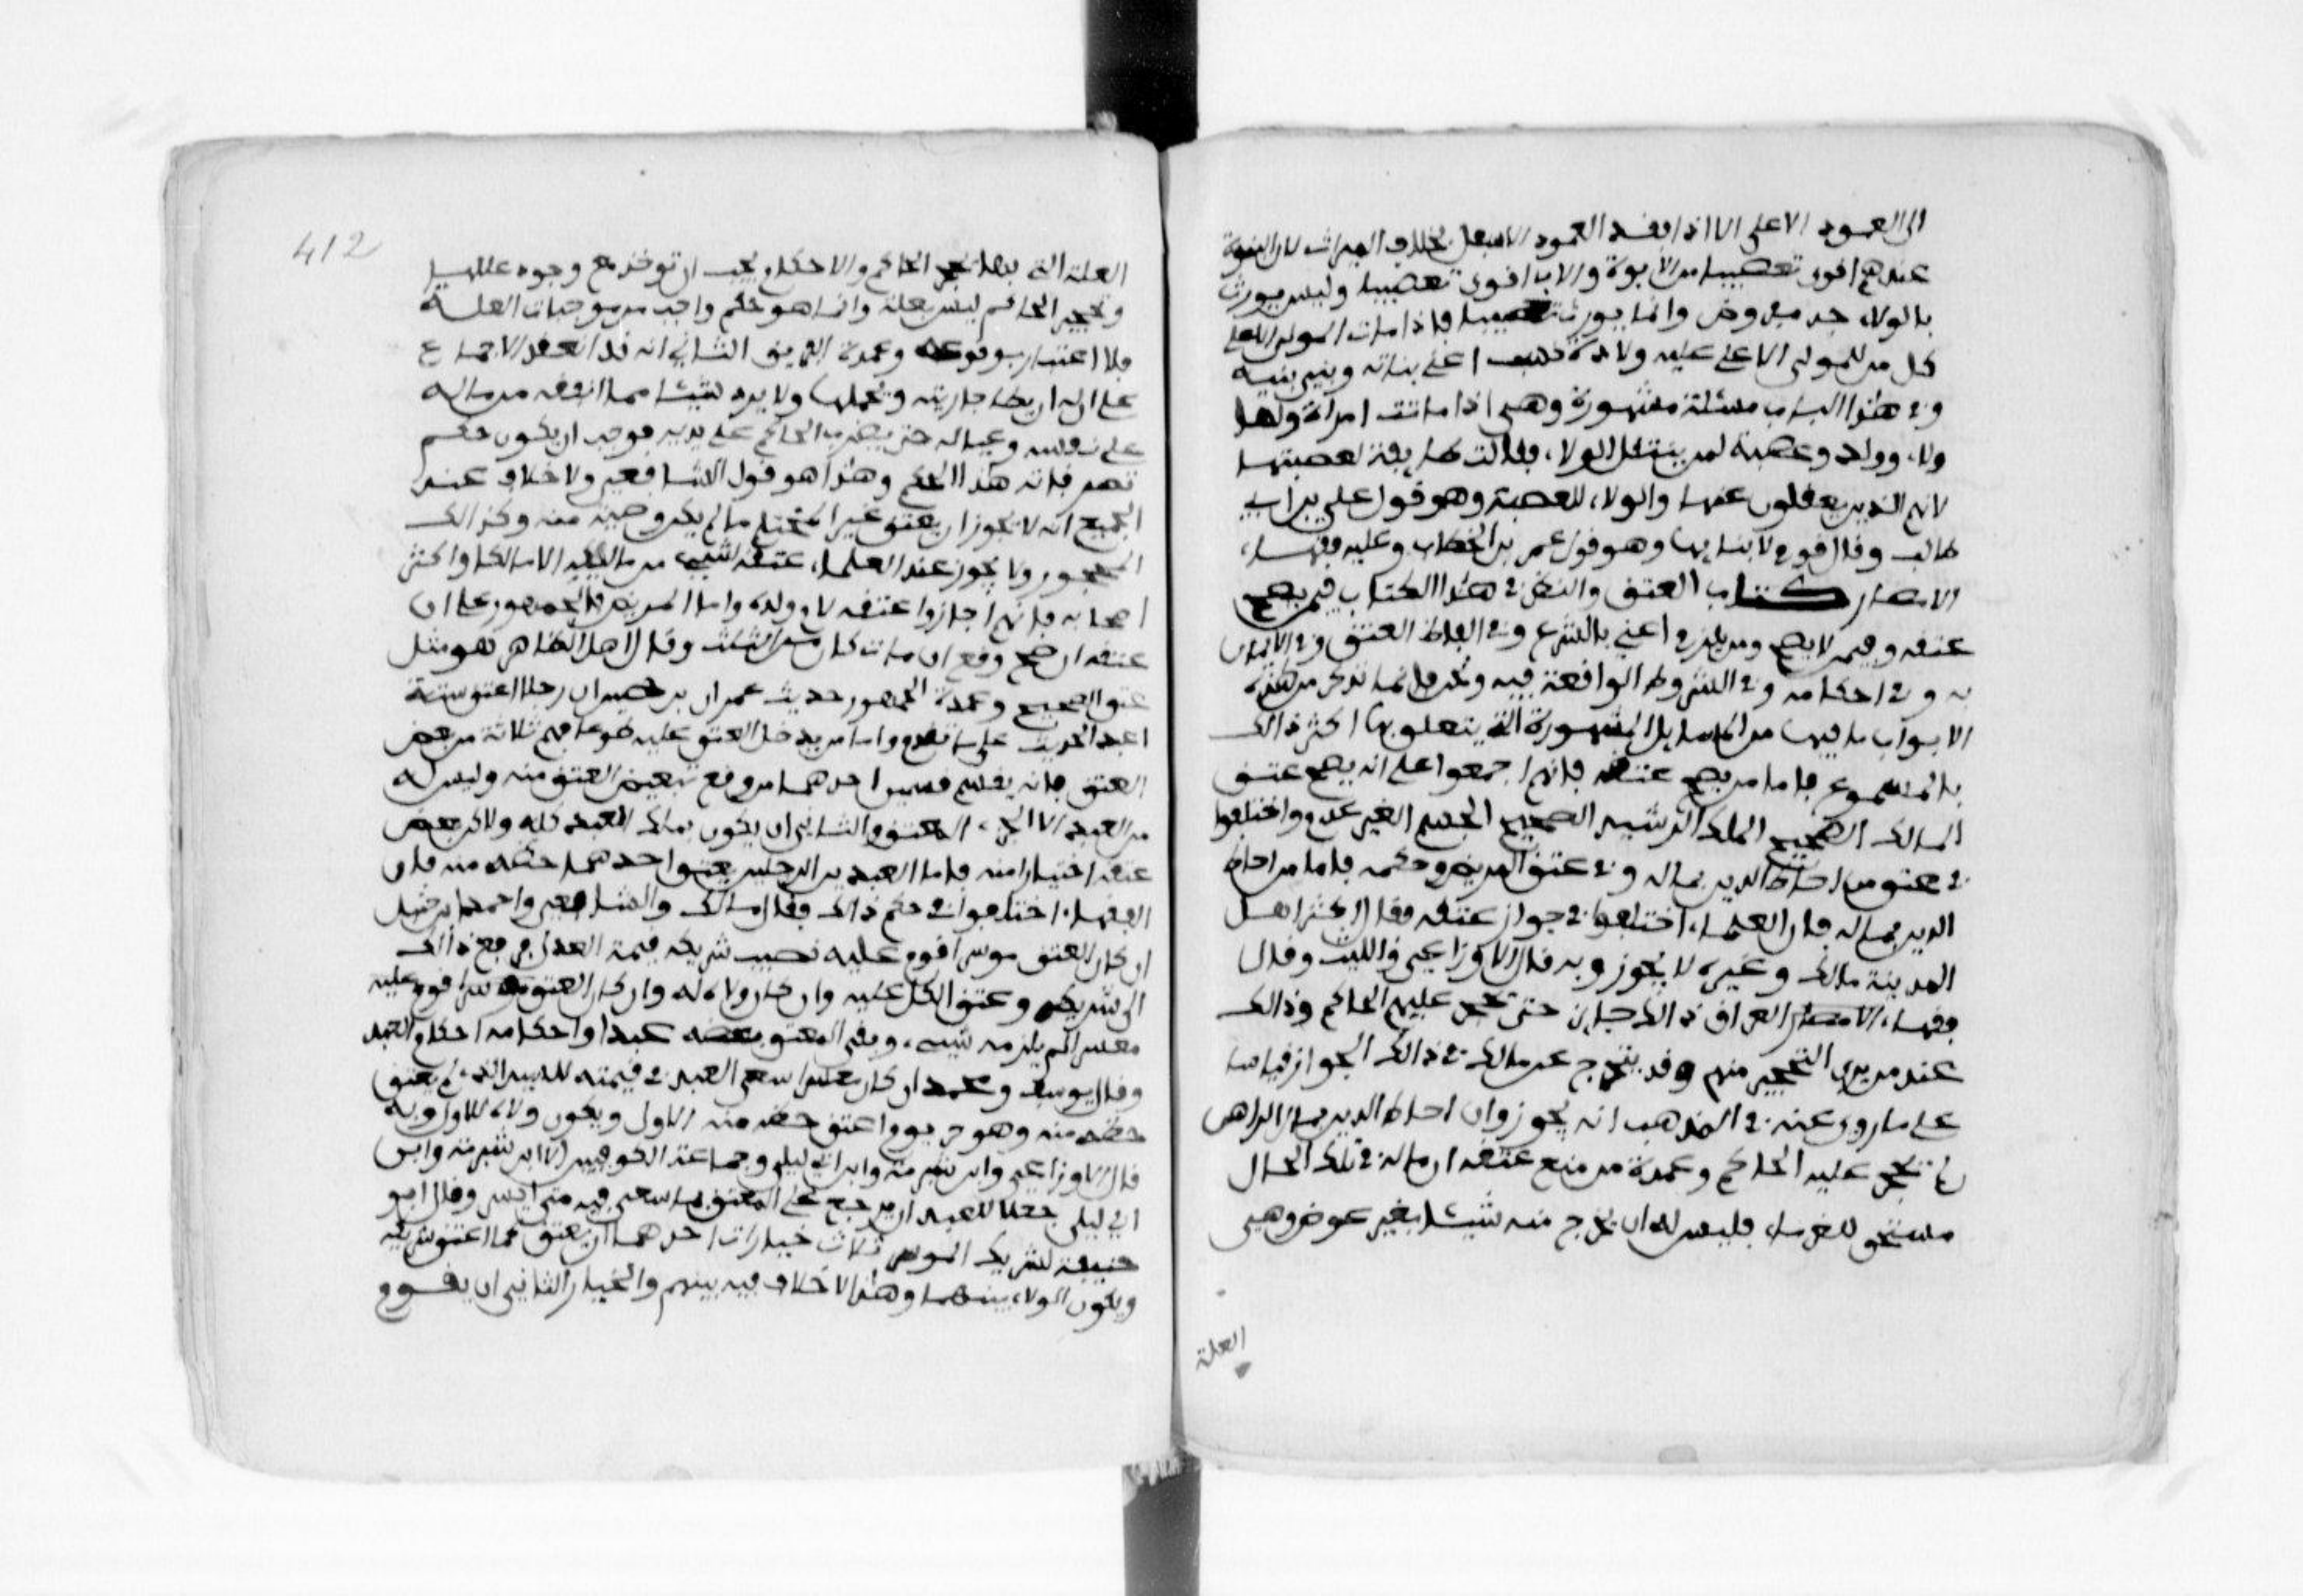 الى العمود الاعلى الا اذا فقد العمود الاسفل بخلاف الميراث لان البنوة
عندهم اقوى تعصيبا من الابوة والاب اقوى تعصيبا وليس يورث
بالولاء جد مفروض وانما يورث تعصيبا فاذا مات المولى الاعلى
كل من للمولى الاعلى عليه ولادة اعلى بناته وبنى بنيه
وفى هذا الباب مسئلة مشهورة وهى اذا ماتت امراة ولها
ولاء وولد وعصبة لمن ينتقل الولاء فقالت طايفة لعصبتها
لانهم الذين يعقلون عنها والولاء للعصبة وهو قول علي بن ابي
طالب وقال قوم لابنايها وهو قول عمر بن الخطاب وعليه فقهاء
الامصار كتاب العتق والنظر فى هذا الكتاب فيمن يصح
عتقه وفيمن لا يصح ومن يلزم اعني بالشرع وفى الفاظ العتق وفى الايمان
به وفى احكامه وفى الشروط الواقعة فيه ونحن فانما نذكر من هذه
الابواب ما فيها من المسايل المشهورة التى يتعلق بها اكثر ذالك
بالمسموع فاما من يصح عتقه فانهم اجمعوا على انه يصح عتق
المالك الصحيح الملك الرشيد الصحيح الجسم الغير عديم واختلفوا
فى عتق من احاط الدين بماله وفى عتق المريض وحكمه فاما من احاط
الدين بماله فان العلماء اختلفوا فى جواز عتقه فقال اكثر اهل
المدينة مالك وغيره لا يجوز وبه قال الاوزاعي والليث وقال
فقهاء الامصار العراق ذالك جايز حتى يحجر عليهم الحاكم وذالك
عند من يرى التحجير منهم وقد يتخرج عن مالك فى ذالك الجواز قياسا
على ما روى عنه فى المذهب انه يجوز وان احاط الدين بمال الراهن
لم يحجر عليه الحاكم وعمدة من منع عتقه ان ماله فى تلك الحال
مستحق للغرماء فليس له ان يخرج منه شيئا بغير عوض وهى
العلة
412
العلة التى بها يحجر الحاكم والاحكام يجب ان توخذ مع وجود عللها
وتحجير الحاكم ليس بعلة وانما هو حكم واجب من موجبات العلة
فلا اعتبار بوقوعه وعمدة الفريق الثاني انه قد انعقد الاجماع
على ان له ان يطا جاريته ويحبلها ولا يرد شيئا مما انفقه من ماله
على نفسه وعياله حتى يضرب الحاكم على يديه فوجب ان يكون حكم
تصرفاته هذا الحكم وهذا هو قول الشافعي ولا خلاف عند
الجميع انه لا يجوز ان يعتق غير المحتلم ما لم يكن وصية منه وكذالك
المحجور ولا يجوز عند العلماء عتقه لشيء من مماليكه الا مالكا واكثر
اصحابه فانهم اجازوا عتقه لام ولده واما المريض فالجمهور على ان
عتقه ان صح وقع ان مات كان من الثلث وقال اهل الظاهر هو مثل
عتق الصحيح وعمدة الجمهور حديث عمران بن حصين ان رجلا اعتق ستة
اعبد الحديث على ما تقدم واما من يدخل العتق عليه طوعا فهم ثلاثة من بعض
العتق فانه ينقسم قسمين احدهما من وقع تبعيض العتق منه وليس له
من العبد الا الجزء المعتق والثاني ان يكون يملك العبد كله ولاكن بعض
عتقه اختيارا منه فاما العبد بين الرجلين يعتق احدهما حظه منه فان
الفقهاء اختلفوا فى حكم ذالك فقال مالك والشافعي واحمد بن حنبل
ان كان المعتق موسرا قوم عليه نصيب شريكه قيمة العدل فدفع ذالك
الى شريكه وعتق الكل عليه وان كان ولاه له وان كان المعتق معسرا قوم عليه
معسرا لم يلزمه شيء وبقى المعتق بعضه عبدا واحكامه احكام العبد
وقال يوسف ومحمد ان كان معسرا سعى العبد فى قيمته للسيد الذى لم يعتق
حظه منه وهو حر يوم اعتق حظه منه الاول ويكون ولاه للاول وبه
قال الاوزاعي وابن شبرمة وابن ابي ليلى وجماعة الكوفيين الا ابن شبرمة وابن
ابي ليلى جعلا للعبد ان يرجع على المعتق بما سعى فيه متى ايسر وقال ابو
حنيفة لشريك الموسر ثلاث خيارات احدهما ان يعتق كما اعتق شريكه
ويكون الولاء بينهما وهذا لا خلاف فيه بينهم والخيار الثاني ان يقوم